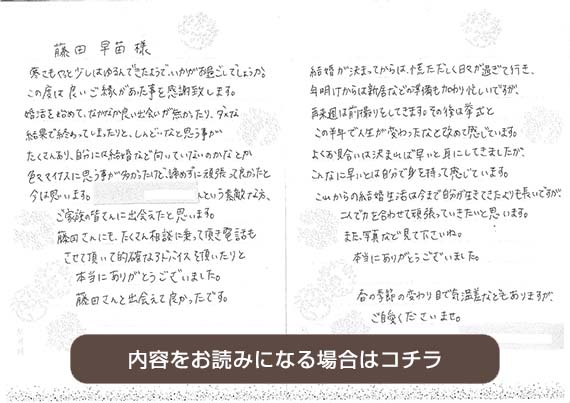 藤田 早苗様
寒さもやっと少しはゆるんできたようで、いかがお過ごしでしょうか。
この度は良いご縁があった事を感謝致します。
婚活を始めて、なかなか良い出会いが無かったり、ダメな
結果で終わってしまったりと、しんどいなと思う事が
たくさんあり、自分には結婚など向いていないのかなとか
色々マイナスに思う事が多かったけど、諦めずに頑張って良かったと
今は思います。 んという素敵な方、
ご家族の皆さんに出会えたと思います。
藤田さんにも、たくさん相談に乗って頂き電話も
させて頂いて的確なアドバイスを頂いたりと
本当にありがとうございました。
藤田さんと出会えて良かったです。
結婚が決まってからは、慌ただしく日々が過ぎて行き、
年明けからは新居などの準備も加わり忙しいですが、
再来週は前撮りをしてきます。その後は挙式と
この半年で人生が変わったなと改めて感じています。
よくお見合いは決まれば早いと耳にしてきましたが、
こんなに早いとは自分で身を持って感じています。
これからの結婚生活は今まで自分が生きてきたよりも長いですが、
二人で力を合わせて頑張っていきたいと思います。
また、写真など見て下さいね。
本当にありがとうございました。
春の季節の変わり目で気温差などもありますが、
ご自愛くださいませ。
内容をお読みになる場合はコチラ